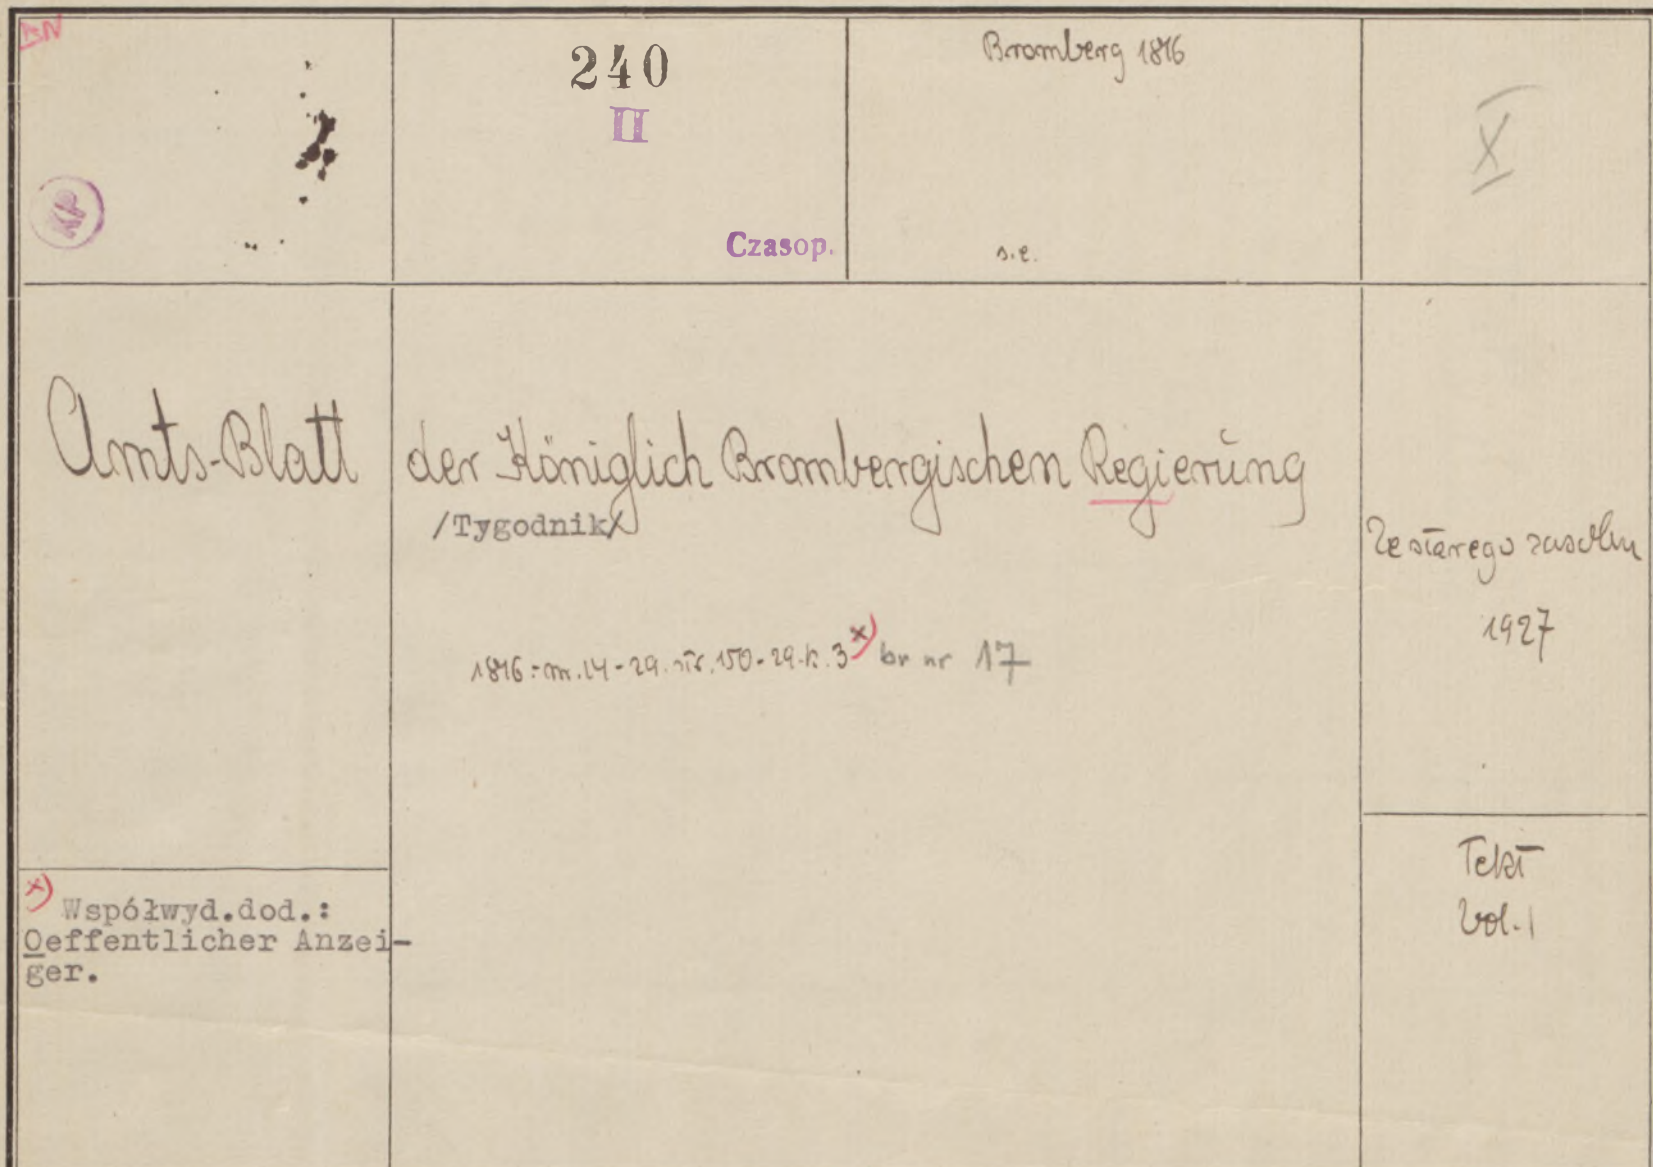 AN
240
II
Czasop.
Bromberg 1816
s.e.
X
Amts-Blatt der Königlich Brombergischen Regierung
/Tygodnik/
1816: nr. 14-29. str. 150-29. k. 3 x) br nr 17
Ze starego zasobu
1927
x) Współwyd.dod.:
Oeffentlicher Anzei-
ger.
Tekst
Vol. 1